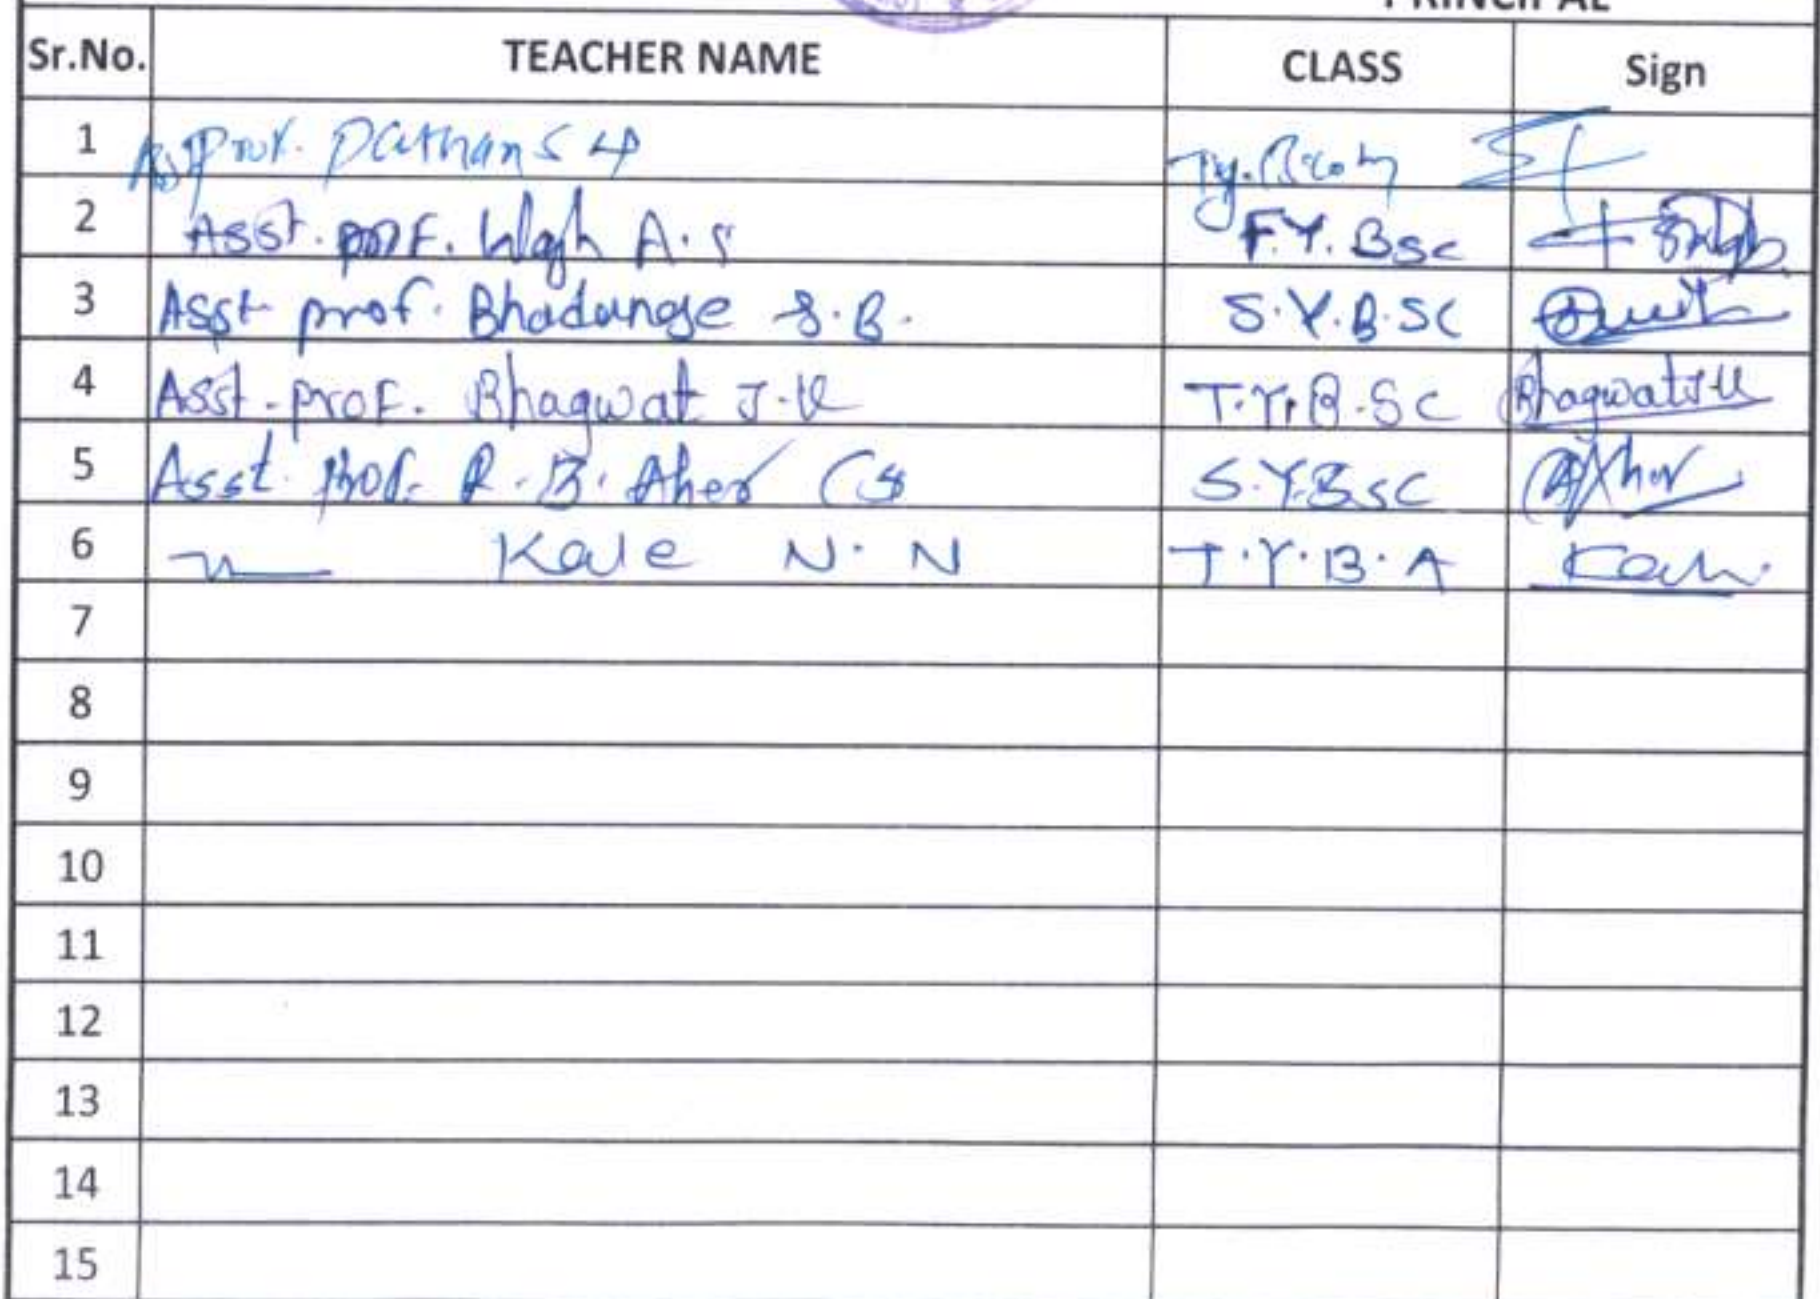 PRINCIPAL
Sr.No. TEACHER NAME CLASS Sign
1 Asst Prof. Pathan S T.y.Bcom
2 Asst. prof. Wagh A.S F.Y. Bsc
3 Asst prof. Bhadange S.B. S.Y.B.SC
4 Asst. prof. Bhagwat J.V T.Y.B.SC Bhagwat
5 Asst. prof. R.B. Aher CS S.Y.BSC Aher
6 Kale N. N T.Y.B.A Kale
7
8
9
10
11
12
13
14
15